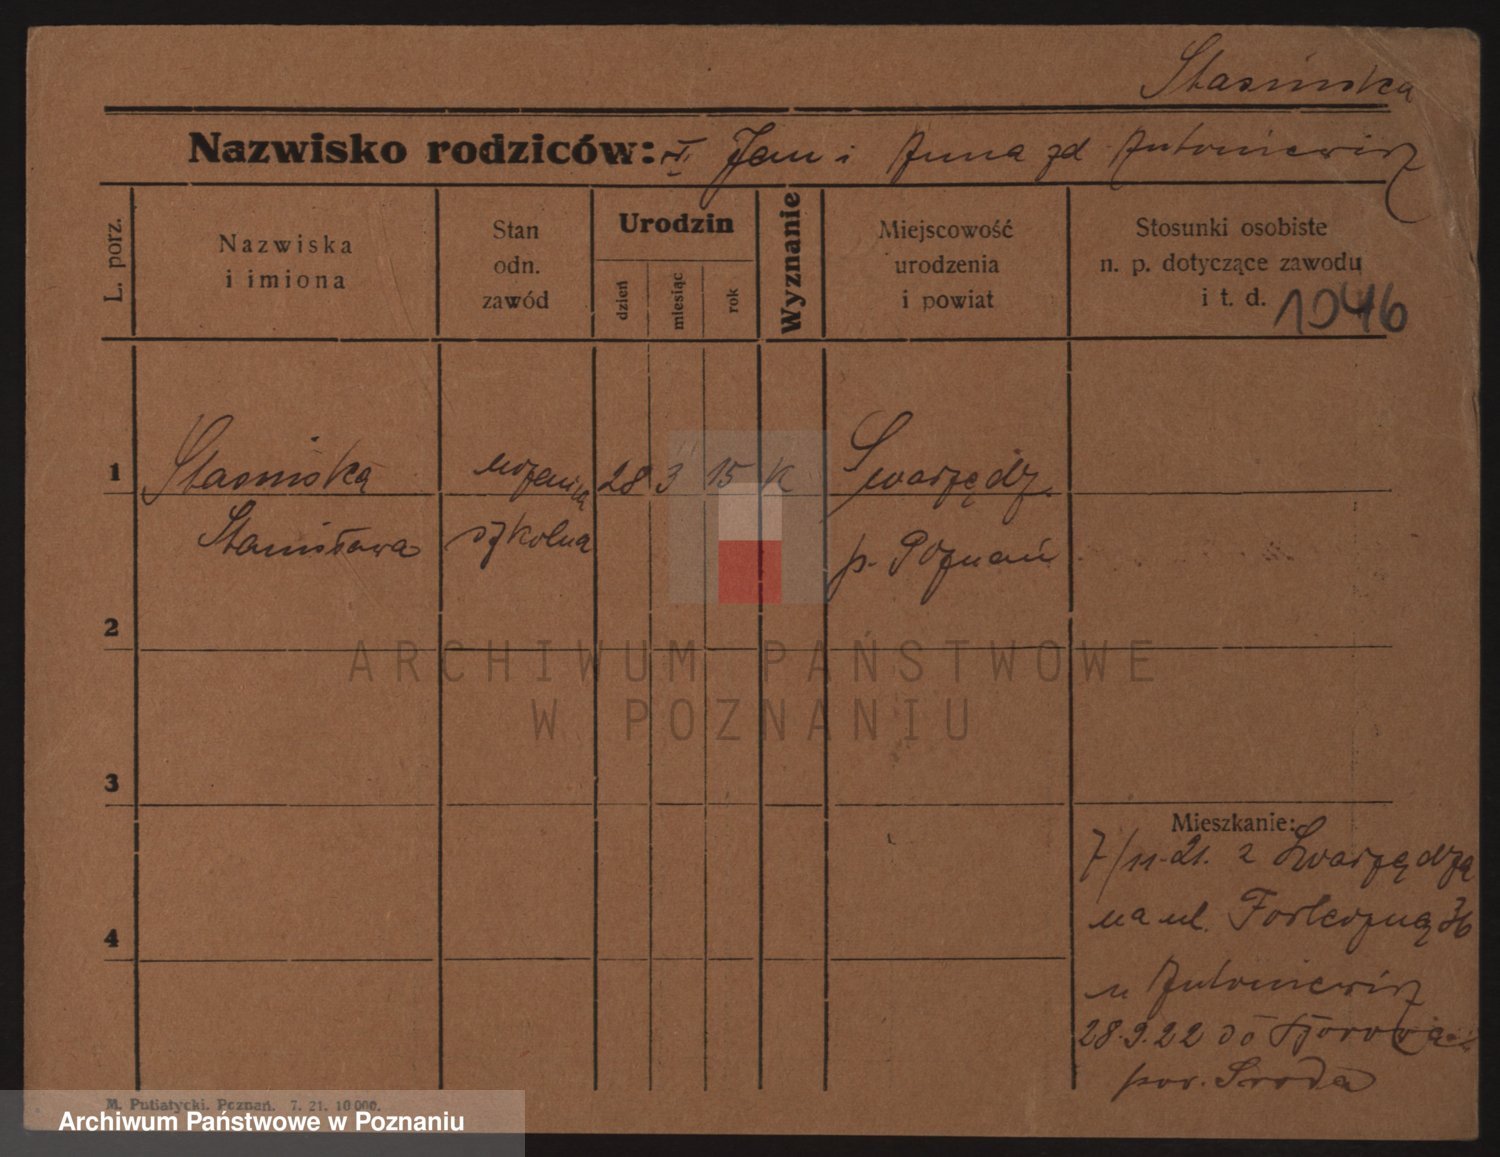 Stasińska
Nazwisko rodziców: Jan i Anna zd Antoniewicz
L. porz.
Nazwiska
i imiona
Stan
odn.
zawód
Urodzin
dzień
miesiąc
rok
Wyznanie
Miejscowość
urodzenia
i powiat
Stosunki osobiste
n. p. dotyczące zawodu
i t. d.
1946
1 Stasińska uczenica 28 3 15 K Swarzędz
Stanisława szkolna p. Poznań
2
3
4
Mieszkanie:
7/11.21. z Swarzędza
na ul. Forteczną 36
u Antoniewicz
28.9.22 do
pow. Sroda
M. Putiatycki. Poznań. 7. 21. 10 000.
ARCHIWUM PAŃSTWOWE
W POZNANIU
Archiwum Państwowe w Poznaniu